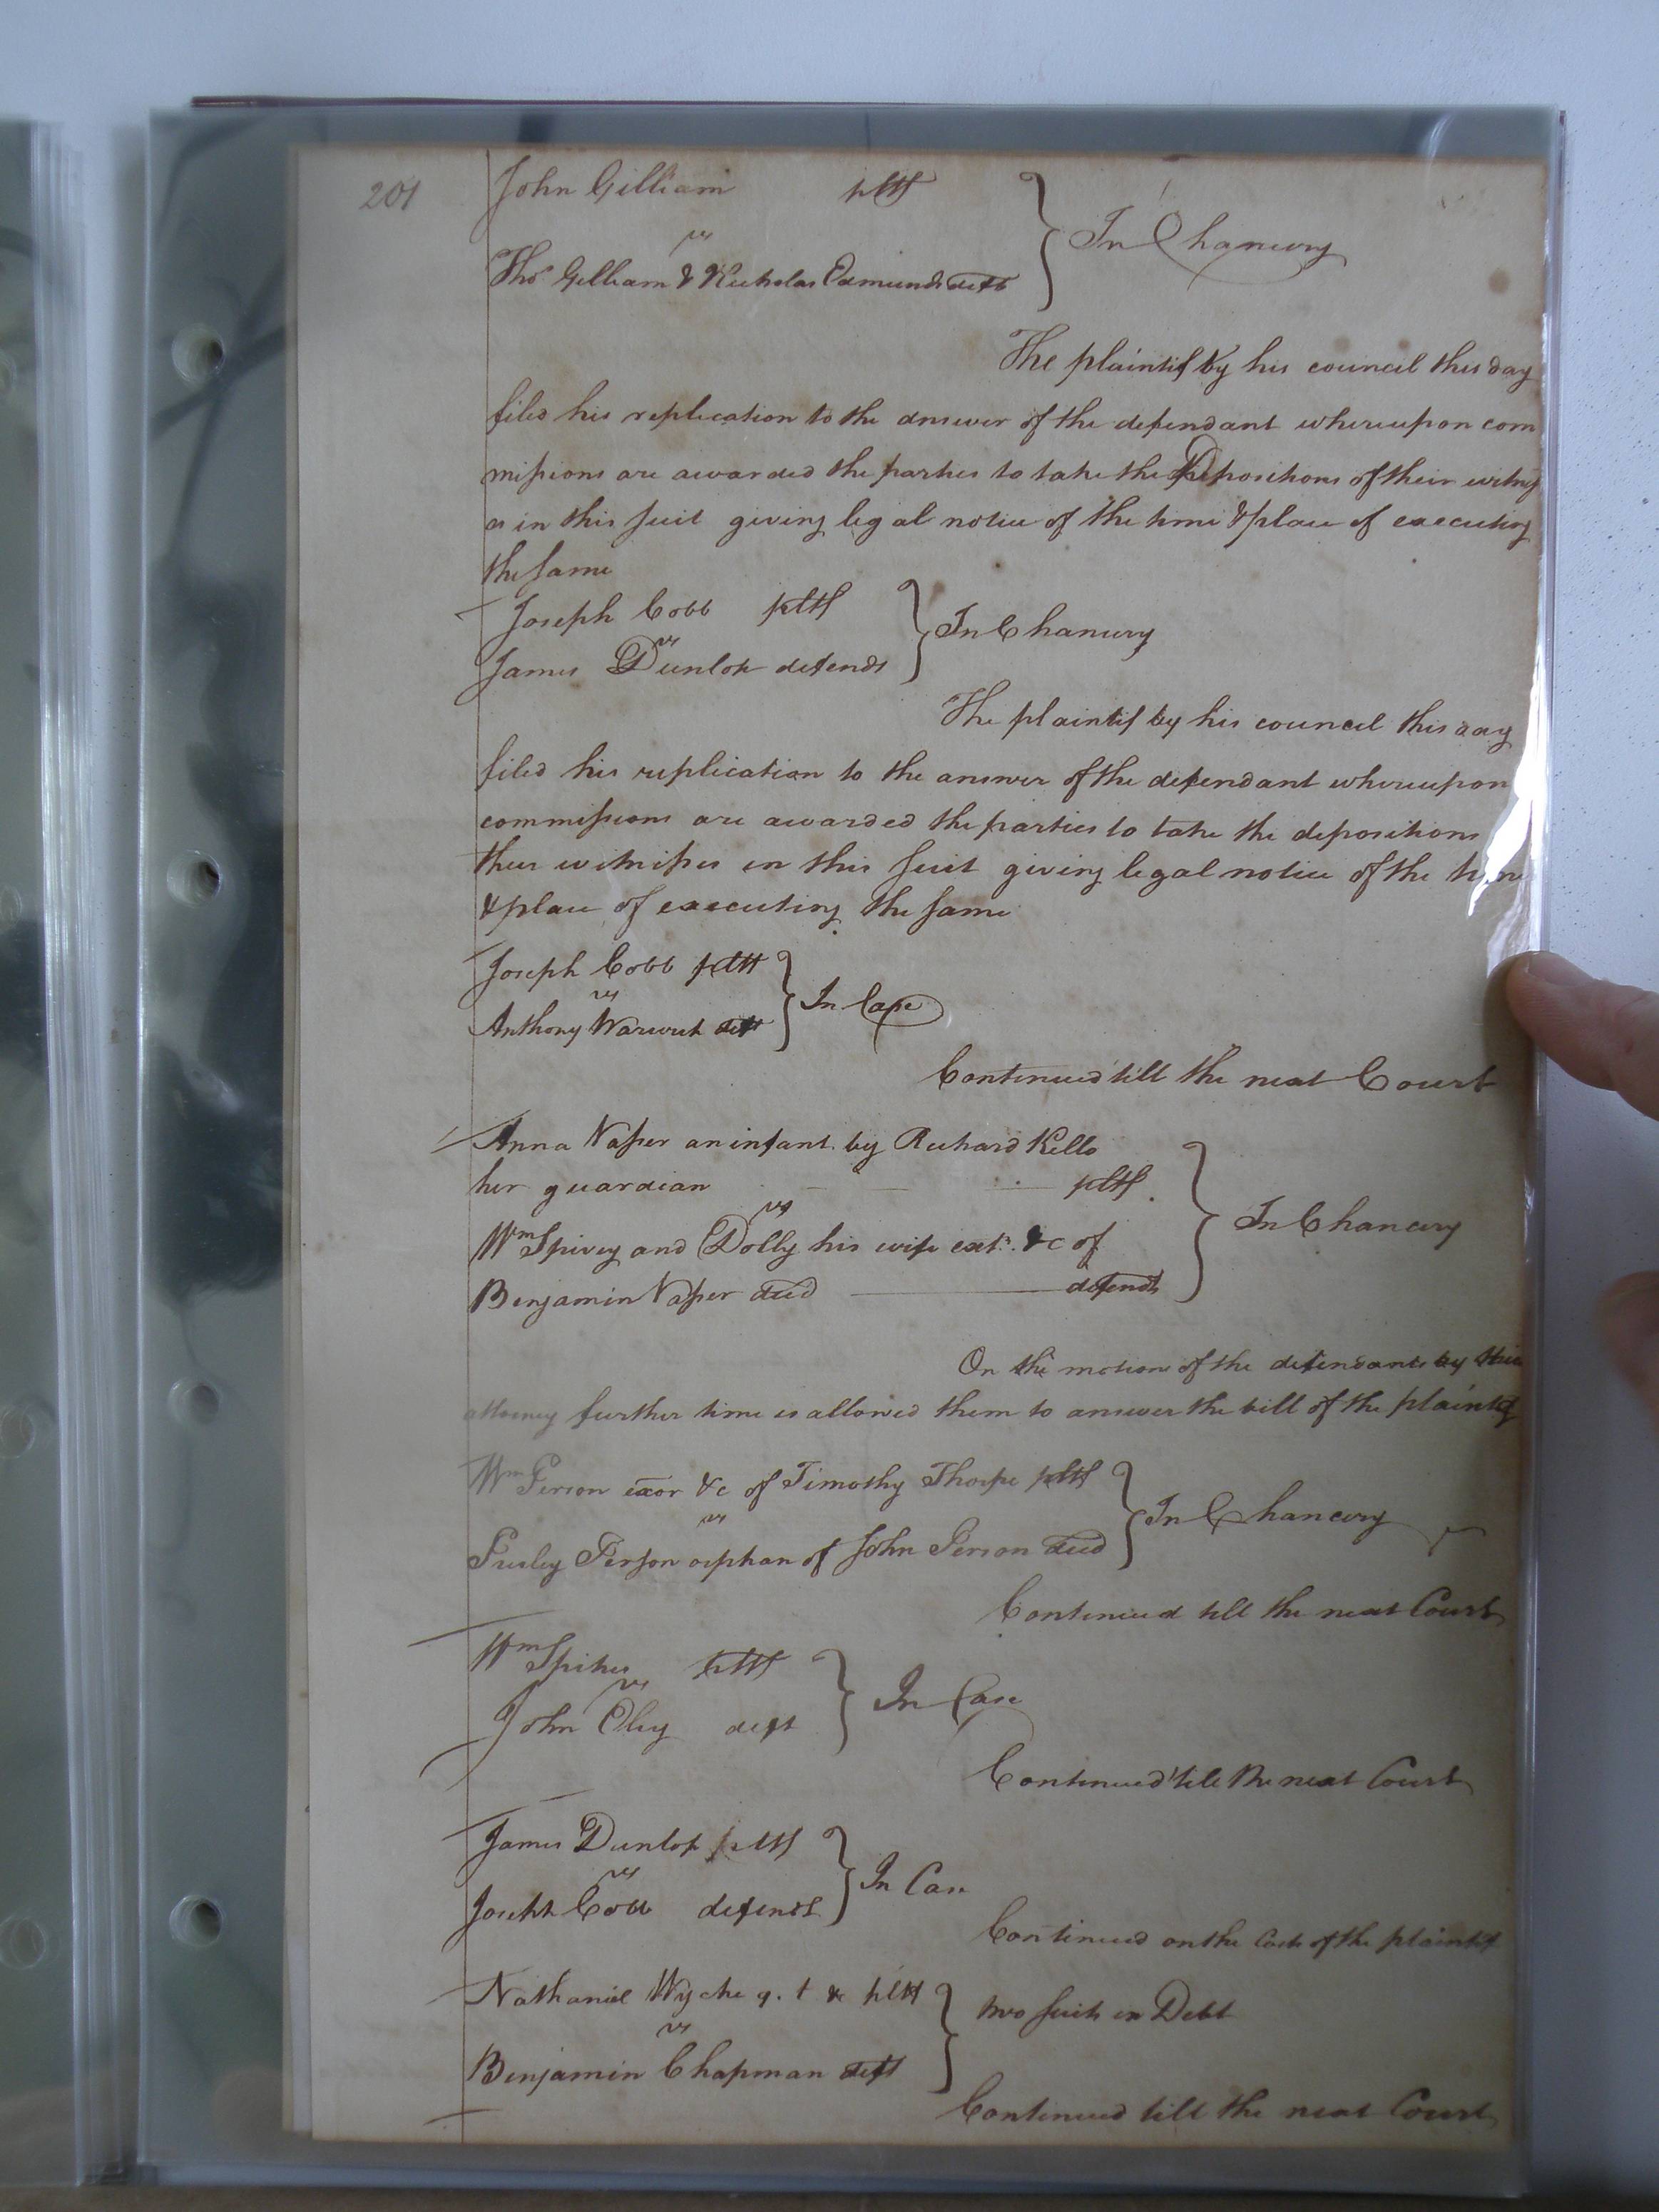 201
John Gilliam pltf
vs
In Chancery
Thos Gilliam & Nicholas Edmunds defts
The plaintif by his council this day
filed his replication to the answer of the defendant whereupon com
missions are awarded the parties to take the Depositions of their witness
es in this suit giving legal notice of the time & place of executing
the same
Joseph Cobb pltf
vs
In Chancery
James Dunlop defendt
The plaintif by his council this day
filed his replication to the answer of the defendant whereupon
commissions are awarded the parties to take the depositions
their witnesses in this suit giving legal notice of the time
& place of executing the same
Joseph Cobb pltf
vs
In Case
Anthony Warwick deft
Continued till the next Court
Anna Naper an infant by Richard Kello
her guardian pltf
vs
In Chancery
Wm Spivey and Dolly his wife exts. &c of
Benjamin Naper decd defendts
On the motion of the defendants by their
attorney further time is allowed them to answer the bill of the plaintif
Wm Person exor &c of Timothy Thorpe pltf
vs
In Chancery
Person orphan of John Person decd
Continued till the next Court
Wm Spikes pltf
vs
In Case
John deft
Continued till the next Court
James Dunlop pltf
vs
In Case
Joseph Cobb defendt
Continued on the Costs of the plaintif
Nathaniel Wyche q. t &c pltf
two suits in Debt
vs
Benjamin Chapman deft
Continued till the next Court